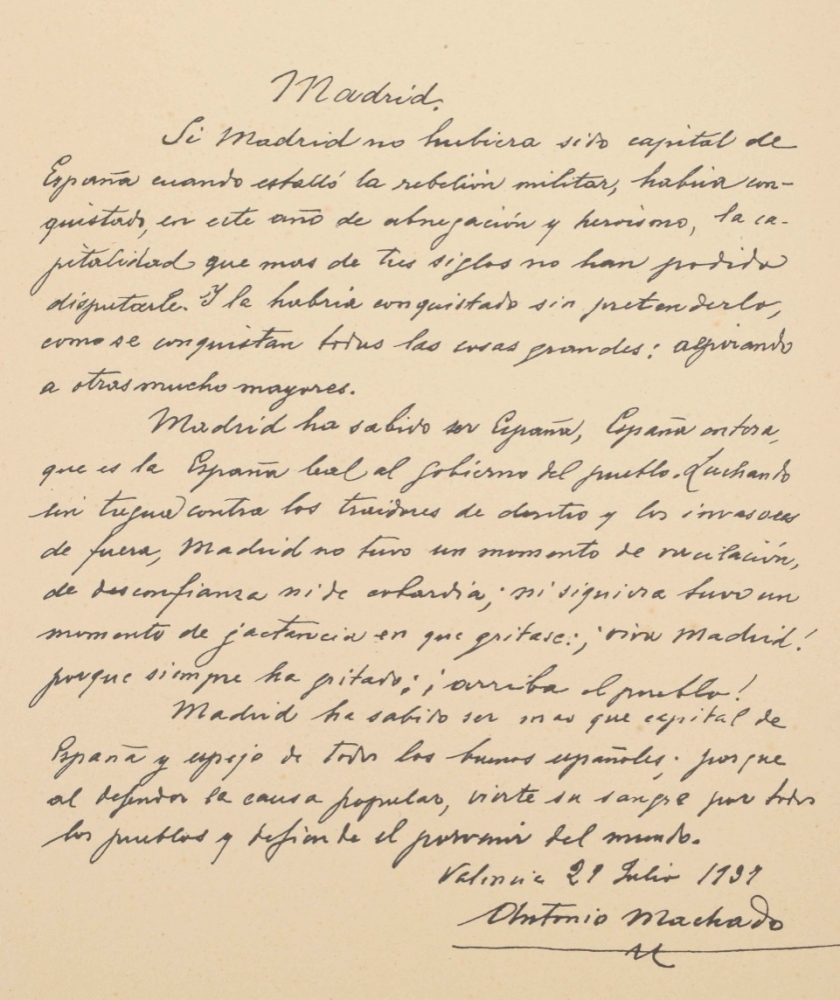 Madrid.
Si Madrid no hubiera sido capital de
España cuando estalló la rebelión militar, habria con-
quistado, en este año de abnegación y heroismo, la ca-
pitalidad que mas de tres siglos no han podido
disputarle. Y la habria conquistado sin pretenderlo,
como se conquistan todas las cosas grandes: aspirando
a otras mucho mayores.
Madrid ha sabido ser España, España entera,
que es la España leal al gobierno del pueblo. Luchando
sin tregua contra los traidores de dentro y los invasores
de fuera, Madrid no tuvo un momento de vacilación,
de desconfianza ni de cobardia; ni siquiera tuvo un
momento de jactancia en que gritase: ¡viva Madrid!
porque siempre ha gritado: ¡arriba el pueblo!
Madrid ha sabido ser mas que capital de
España y espejo de todos los buenos españoles; porque
al defender la causa popular, vierte su sangre por todos
los pueblos y defiende el porvenir del mundo.
Valencia 29 Julio 1937
Antonio Machado